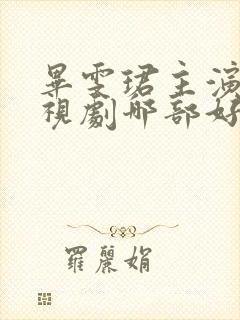 畢雯珺主演
視劇那部好
羅麗娟